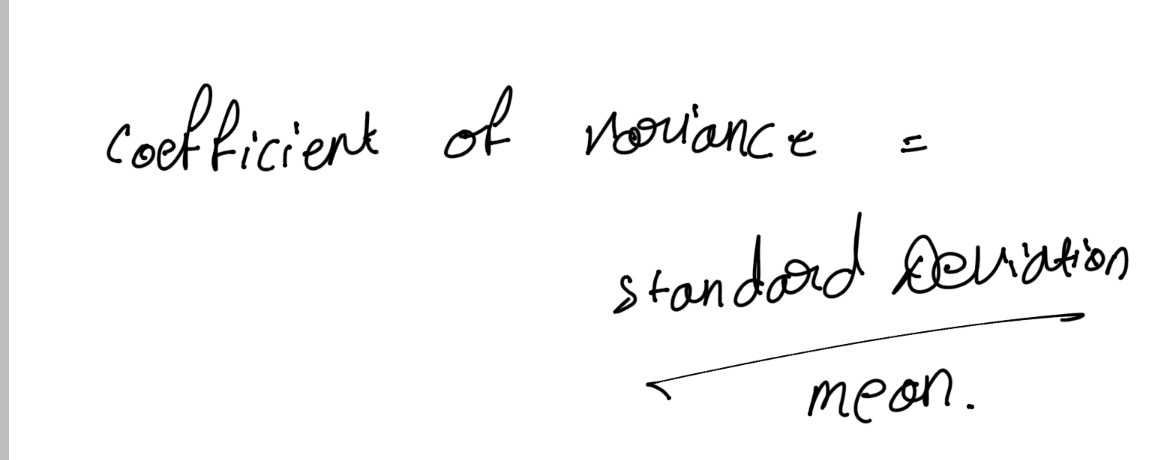 coefficient of variance =
standard Deviation
mean.